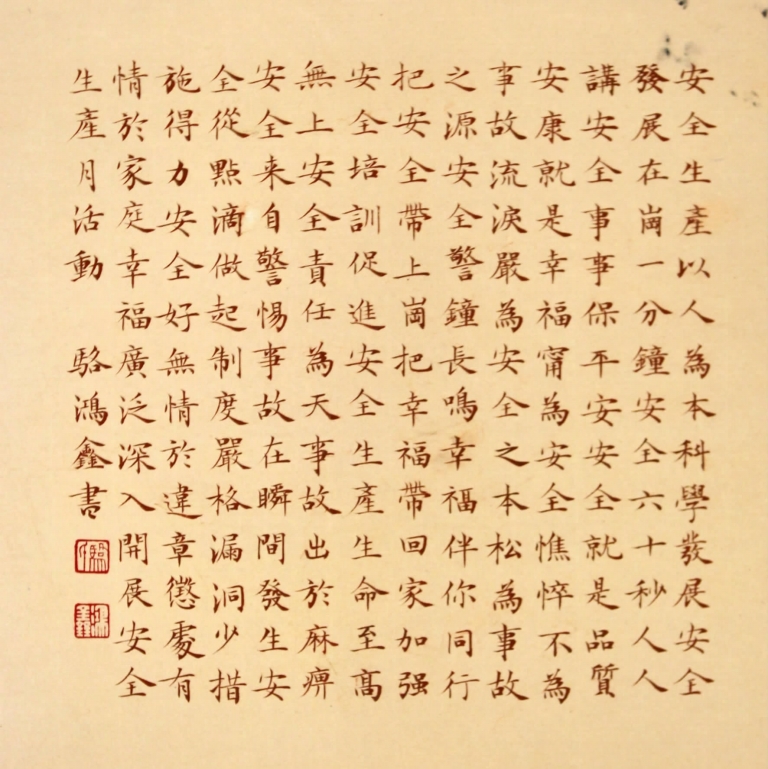 安全生產以人為本科學發展安全
發展在崗一分鐘安全六十秒人人
講安全事事保平安安全就是品質
安康就是幸福甯為安全憔悴不為
事故流淚嚴為安全之本松為事故
之源安全警鐘長鳴幸福伴你同行
把安全帶上崗把幸福帶回家加强
安全培訓促進安全生產生命至髙
無上安全責任為天事故出於麻痹
安全来自警惕事故在瞬間發生安
全從點滴做起制度嚴格漏洞少措
施得力安全好無情於違章懲處有
情於家庭幸福廣泛深入開展安全
生產月活動 駱鴻鑫書